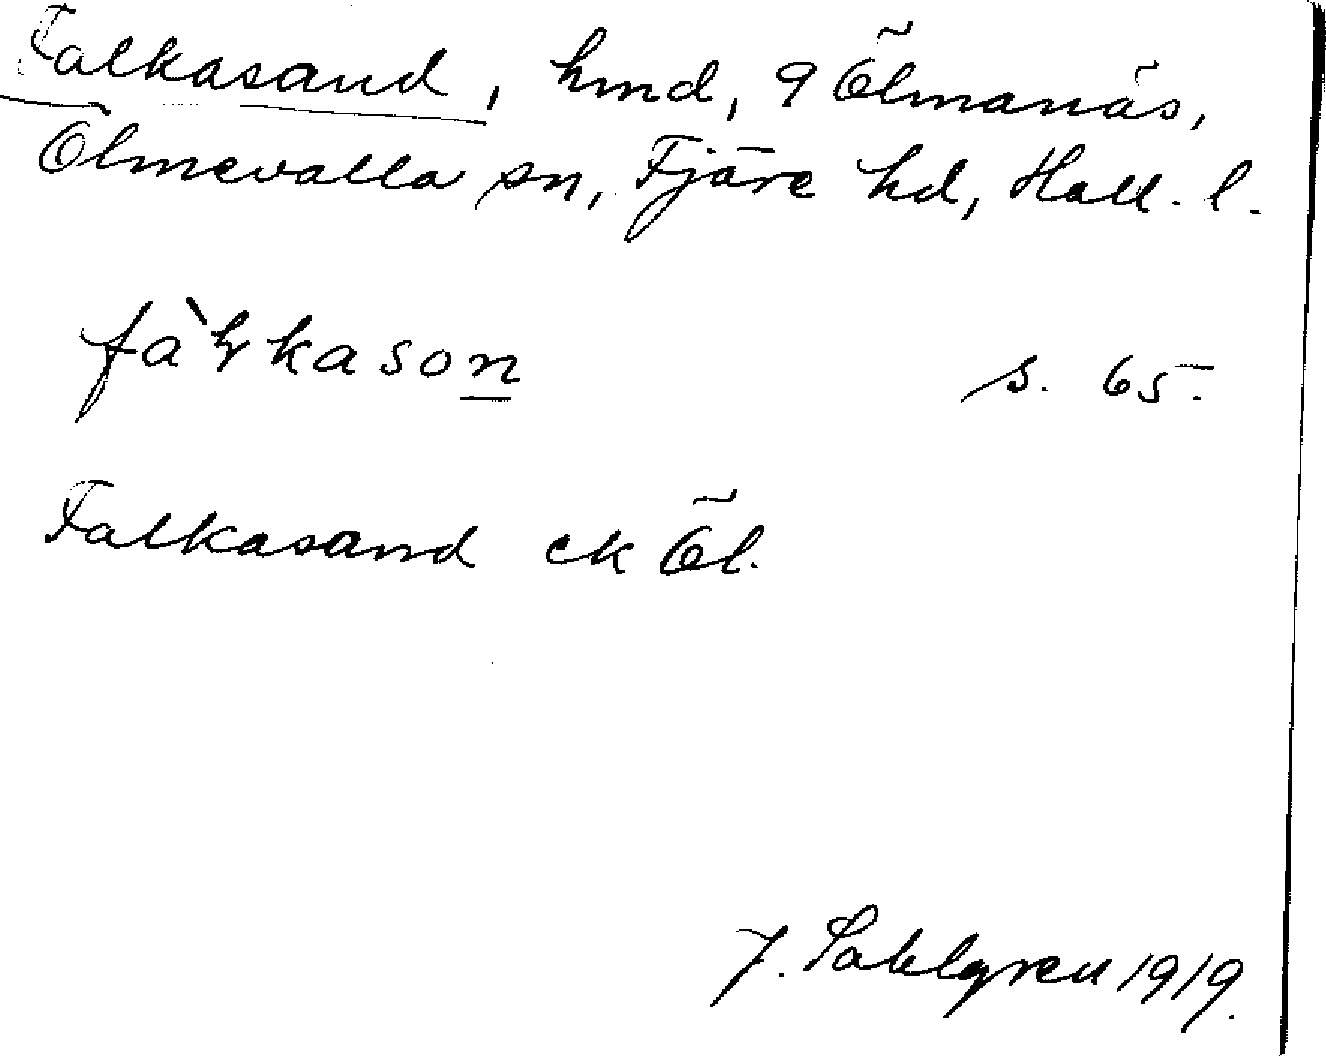 Falkasand, hmd, 9 Ölmanäs,
Ölmevalla sn, Fjäre hd, Hall. l.
fàɫkason s. 65.
Falkasand ek Öl.
J. Sahlgren 1919.